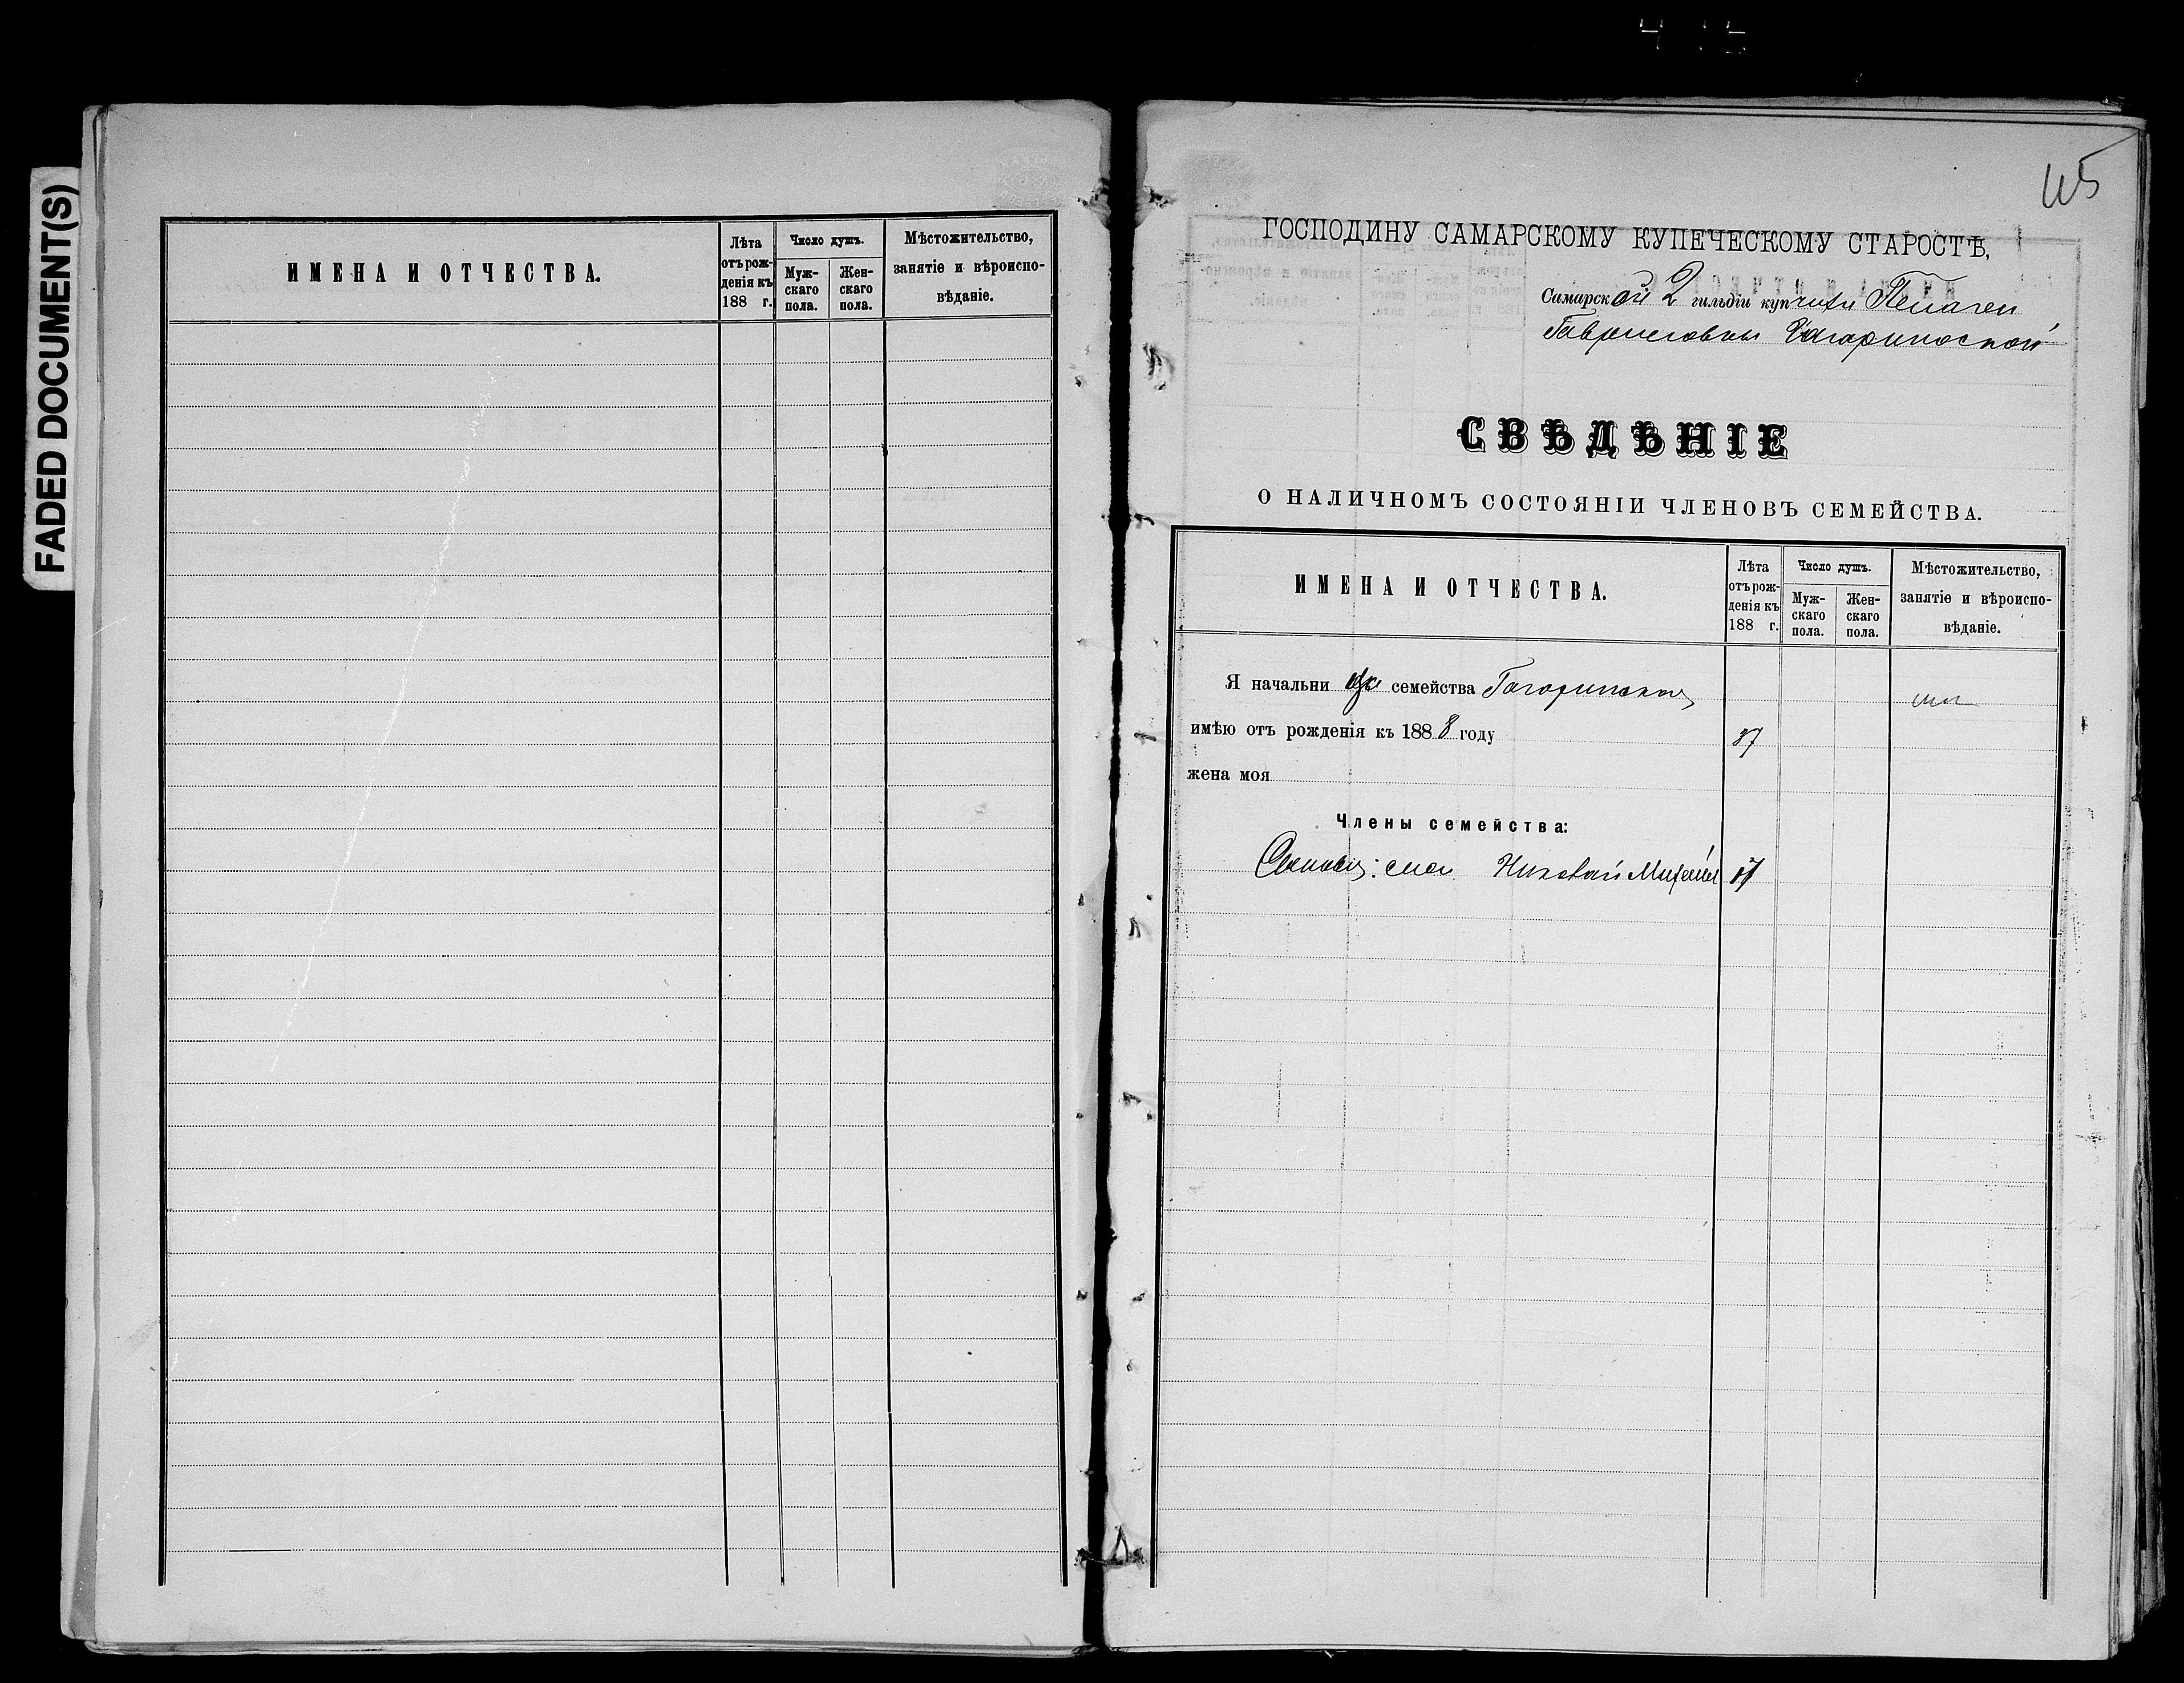 FADED DOCUMENT(S)
ИМЕНА И ОТЧЕСТВА.
Лѣта
отъ рож-
денія къ
188 г.
Число душъ.
Муж-
скаго
пола.
Жен-
скаго
пола.
Мѣстожительство,
занятіе и вѣроиспо-
вѣданіе.
ГОСПОДИНУ САМАРСКОМУ КУПЕЧЕСКОМУ СТАРОСТѢ,
Самарской 2 гильдіи купчихи Пелагеи
Гавриловны
СВѢДѢНІЕ
О НАЛИЧНОМЪ СОСТОЯНІИ ЧЛЕНОВЪ СЕМЕЙСТВА.
ИМЕНА И ОТЧЕСТВА.
Лѣта
отъ рож-
денія къ
188 г.
Число душъ.
Муж-
скаго
пола.
Жен-
скаго
пола.
Мѣстожительство,
занятіе и вѣроиспо-
вѣданіе.
Я начальни семейства
имѣю отъ рожденія къ 1888 году 37
жена моя
Члены семейства:
Николай 17